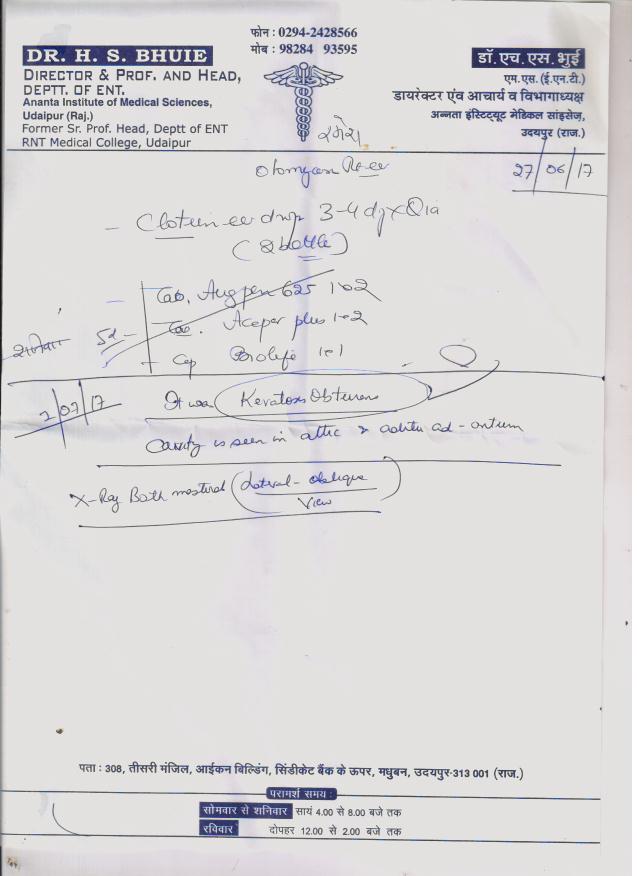 फोन : 0294-2428566
मोब : 98284 93595
DR. H. S. BHUIE
DIRECTOR & PROF. AND HEAD,
DEPTT. OF ENT.
Ananta Institute of Medical Sciences,
Udaipur (Raj.)
Former Sr. Prof. Head, Deptt of ENT
RNT Medical College, Udaipur
डॉ. एच. एस. भुई
एम.एस. (ई.एन.टी.)
डायरेक्टर एंव आचार्य व विभागाध्यक्ष
अनन्ता इंस्टिट्यूट मेडिकल साइसेज,
उदयपुर (राज.)
27/06/17
ear drop 3-4
bottle)
Tab. Augpen 625
Tab. Aceper plus
Cap
2/07/17
It was Keratosis Obturens
Cavity is seen in attic & aditu ad-antrum
X-Ray Both mastoid (Lateral-oblique
View
पता : 308, तीसरी मंजिल, आईकन बिल्डिंग, सिंडीकेट बैंक के ऊपर, मधुबन, उदयपुर-313 001 (राज.)
परामर्श समय :
सोमवार से शनिवार सायं 4.00 से 8.00 बजे तक
रविवार दोपहर 12.00 से 2.00 बजे तक